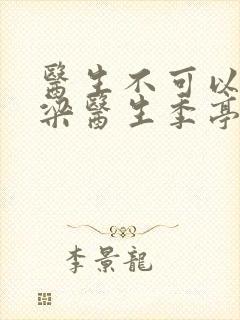 醫生不可以
梁醫生季亭
李景龍